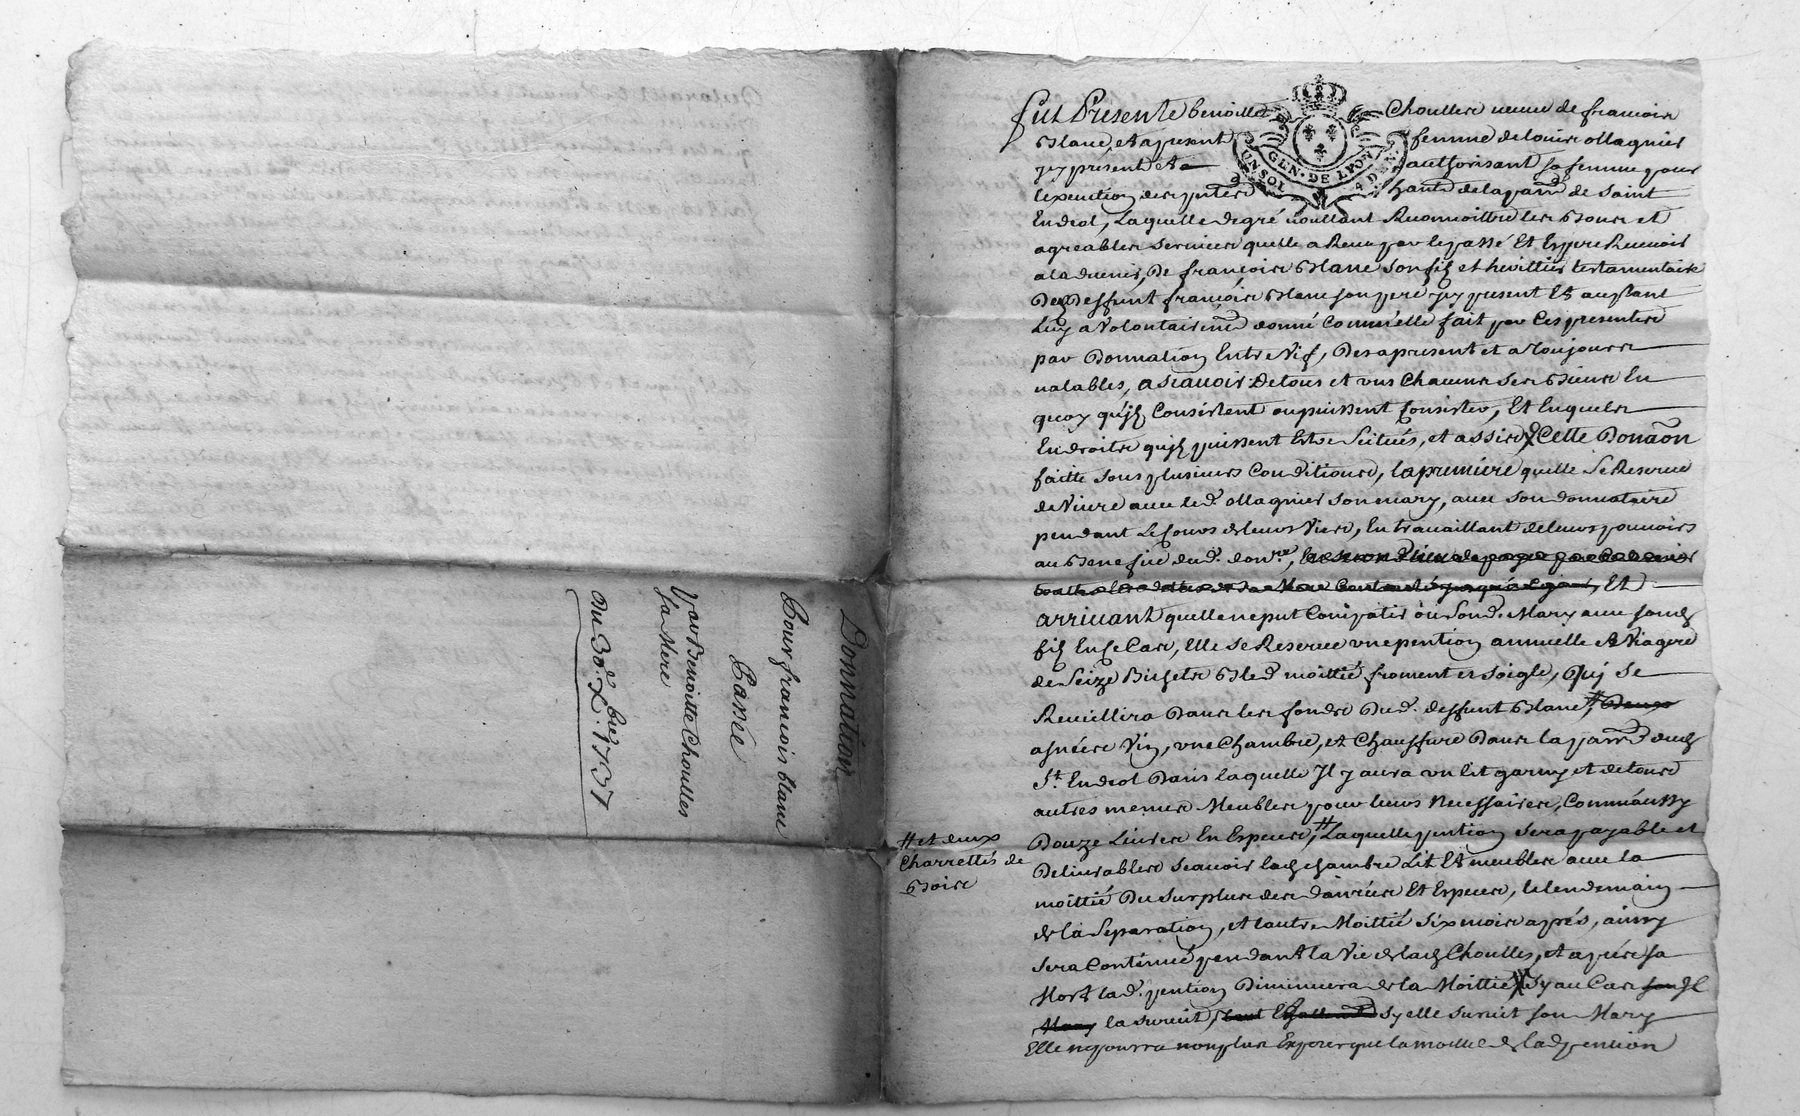 Donnation
Pour francois blanc
Passée
par Benoitte Choulles
sa Mere
Du 30.e X.bre 1757
GEN. DE LYON
UN SOL 4 DEN.
fut Presente benoitte Choulles veuve de francois
Blanc, et apresent femme de louis ollagnier
jcy present et authorisant sa femme pour
lexecution des pntes hantt de la parre de saint
Endeol, Laquelle de gré voullant Reconnoittre les Bons et
agreables services quelle a Receu par le passé Et Espere Recevoir
a ladvenir, De françois Blanc son fiz et heritier testamentaire
De Deffunt françois Blanc son pere jcy present Et acceptant
Luy a Volontairemt donné Comme elle fait par Ces presentes
par Donnation Entre Vif, Des apresent et a Toujours
valables, a scavoir De tous et uns Chacuns ses Biens En
quoy qu'jlz Consistent ou puissent Consister, Et En quels
Endroits qu'jlz puissent Estre Scitués, et assis X Cette Donaon
faitte sous plusieurs Conditions, la premiere quelle Se Reserve
de Vivre avec led. ollagnier son mary, avec son donnataire
pendant Le Cours de leurs Vies, En travaillant de leurs pouvoirs
au Benefice dud. donre, Et
arrivant quelle ne put Compatir ou Sond. Mary avec sond.
fiz En Ce Cas, Elle Se Reserve une pention annuelle Et Viagere
de Seize Bichets Bled moittié froment et soigle, Qui Se
Recüillira Dans les fonds Dud. deffunt Blanc, #
asnées Vin, une Chambre, et Chauffure Dans la parre dud.
St. Endeol Dans laquelle Jl y aura un lit garny et de tous
autres menus Meubles pour leurs Necessaires, Comme aussy
Douze Livres En Especes, # Laquelle pention sera payable et
Delivrables Scavoir lad. chambre Lit Et meubles avec la
moittié Du surplus des danrées Et Especes, le lendemain
de la Separation, et lautre Moittié six mois aprés, ainsy
sera Continué pendant la Vie de lad. Choulles, et aprés sa
Mort lad. pention Diminuera de la Moittié X Sy au Cas
la survit, sy elle survit son Mary
Elle ne pourra non plus Exiger que la moittié de lad. pention
# et deux
Charrettés de
Bois